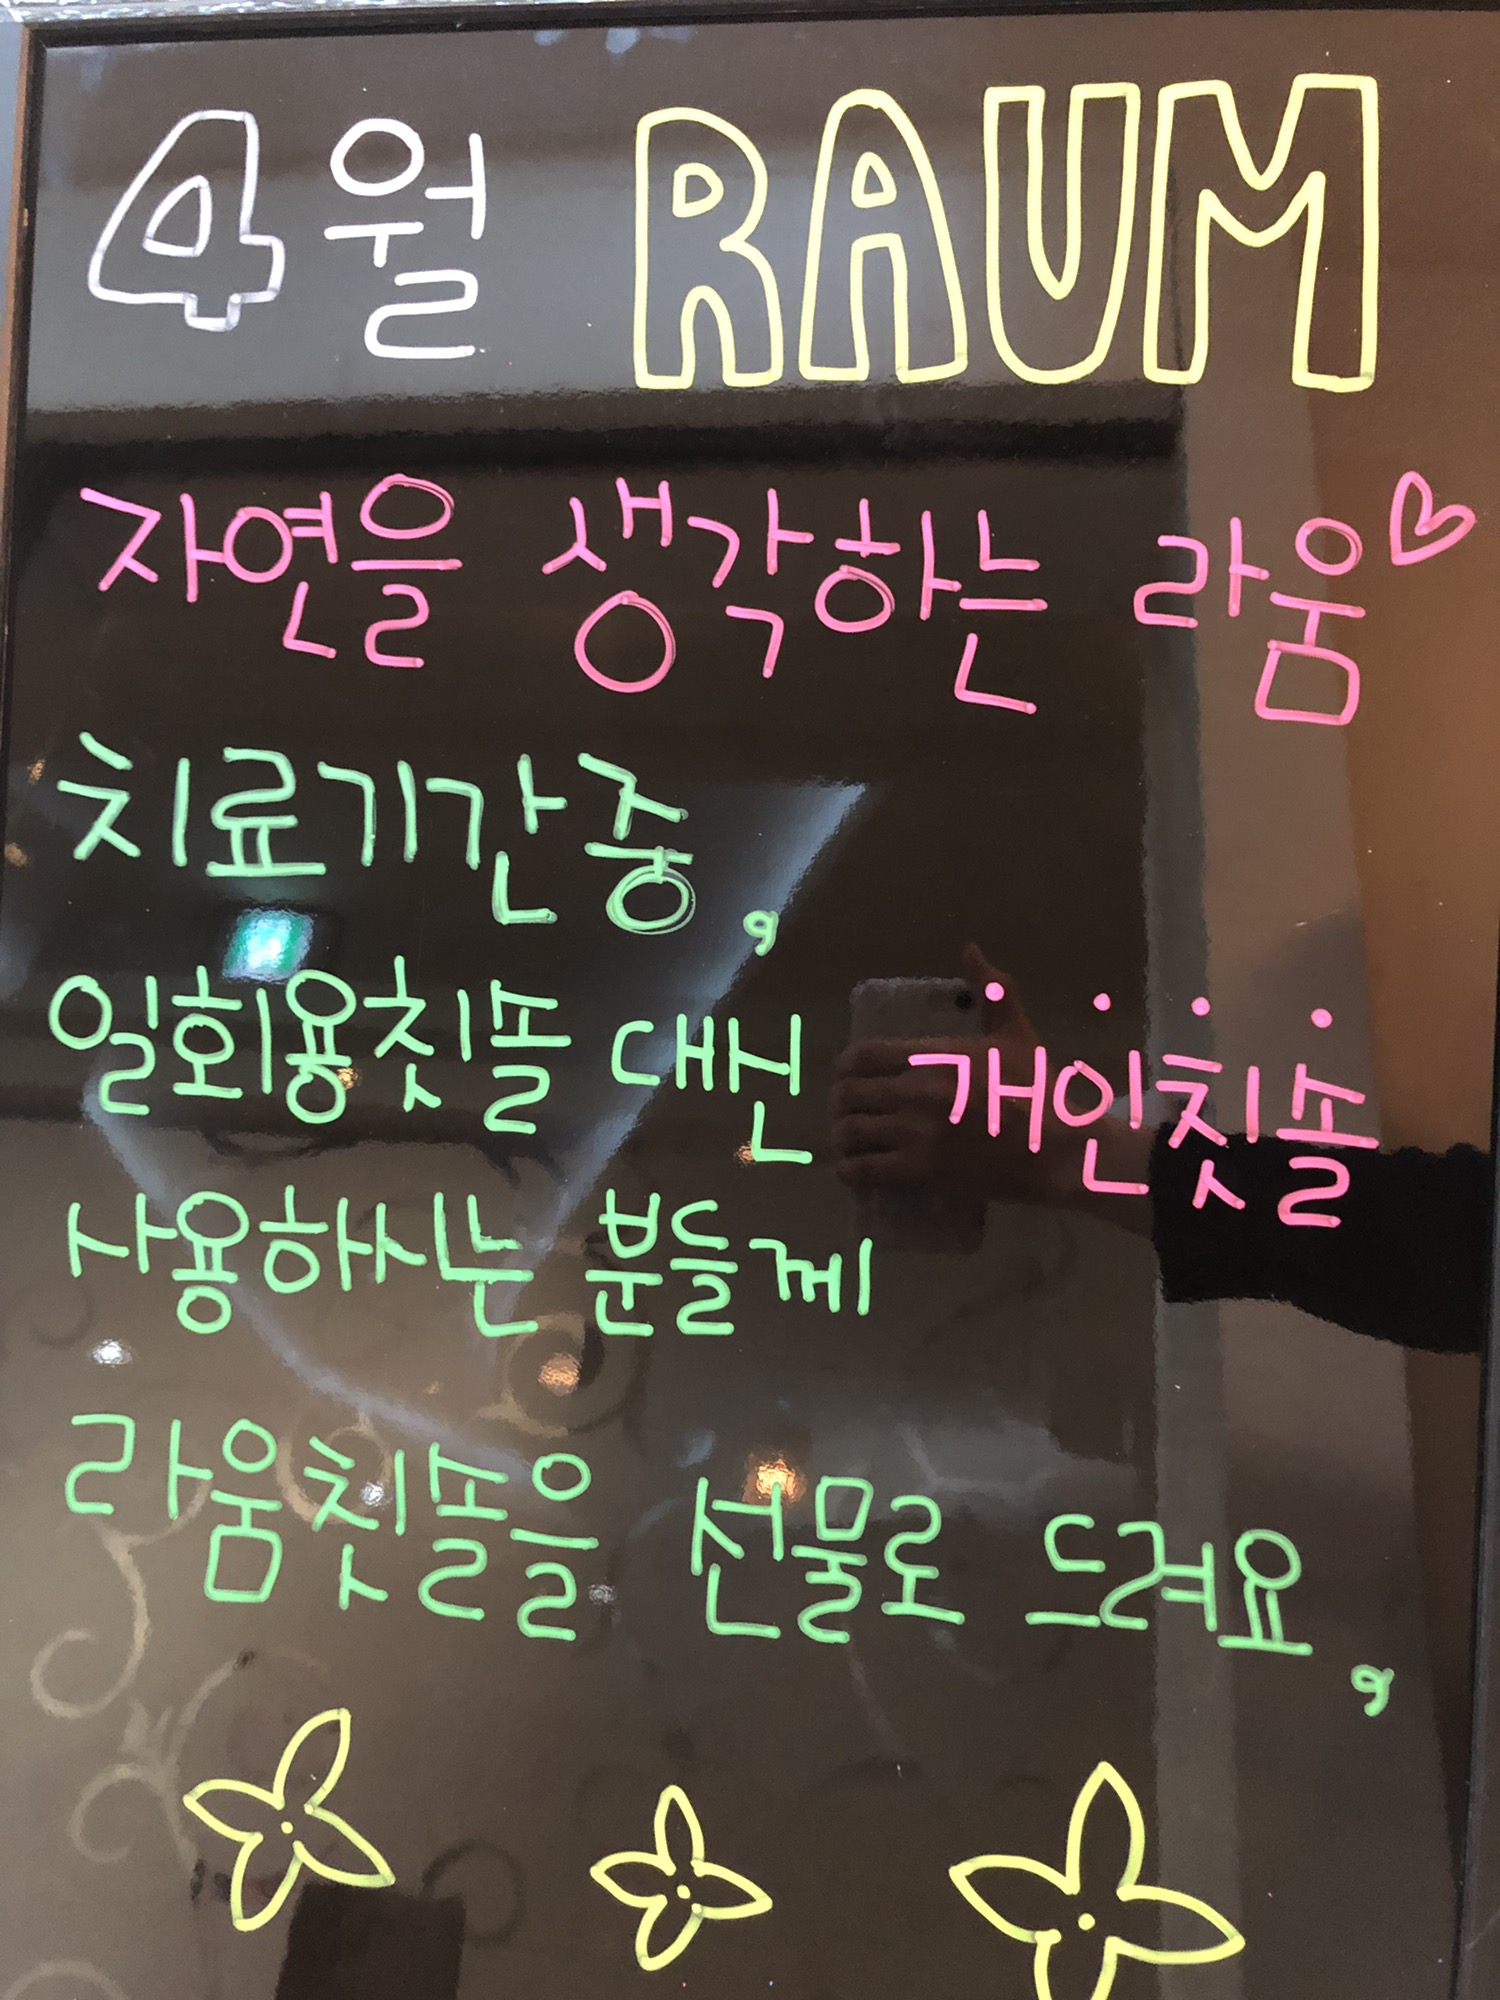 4월 RAUM
자연을 생각하는 라움♡
치료기간 중,
일회용칫솔 대신 개인칫솔
사용하시는 분들께
라움칫솔을 선물로 드려요,